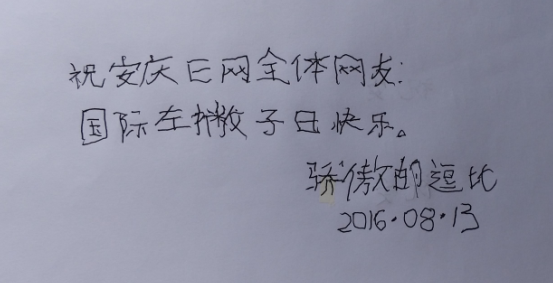 祝安庆E网全体网友:
国际左撇子日快乐。
骄傲的逗比
2016·08·13